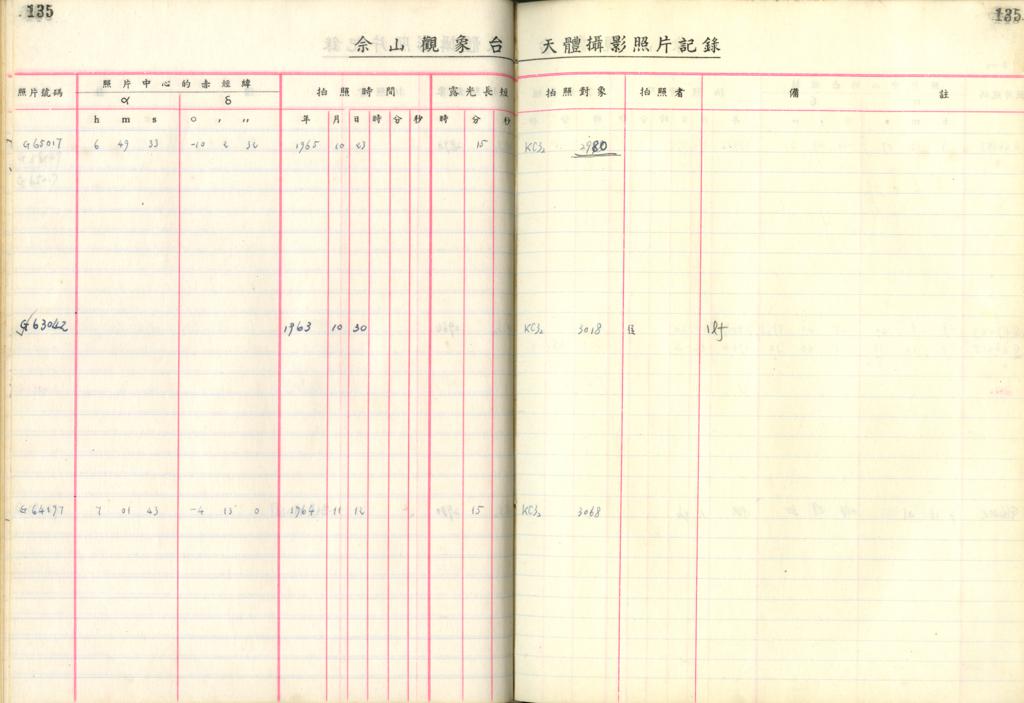 135
135
佘山觀象台 天體攝影照片記錄
照片號碼 照片中心的赤經緯 拍照時間 露光長短 拍照對象 拍照者 備註
α δ
h m s ○ ′ ″ 年 月 日 時 分 秒 時 分 秒
G65017 6 49 33 -10 2 32 1965 10 23 15 KCS2 2980
G63042 1963 10 30 KCS2 3018
G64197 7 01 43 -4 15 0 1964 11 12 15 KCS2 3068